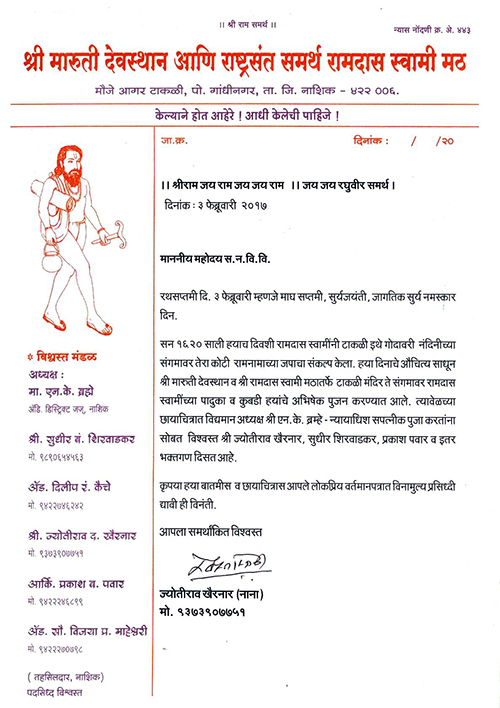 ।। श्री राम समर्थ ।।
न्यास नोंदणी क्र. अे. ४४३
श्री मारुती देवस्थान आणि राष्ट्रसंत समर्थ रामदास स्वामी मठ
मौजे आगर टाकळी, पो. गांधीनगर, ता. जि. नाशिक - ४२२ ००६.
केल्याने होत आहेरे ! आधी केलेची पाहिजे !
जा.क्र.
दिनांक : / /२०
।। श्रीराम जय राम जय जय राम ।। जय जय रघुवीर समर्थ ।
दिनांक : ३ फेब्रूवारी २०१७
माननीय महोदय स.न.वि.वि.
रथसप्तमी दि. ३ फेब्रूवारी म्हणजे माघ सप्तमी, सुर्यजयंती, जागतिक सुर्य नमस्कार
दिन.
सन १६.२० साली हयाच दिवशी रामदास स्वामींनी टाकळी इथे गोदावरी नंदिनीच्या
संगमावर तेरा कोटी रामनामाच्या जपाचा संकल्प केला. हया दिनाचे औचित्य साधून
श्री मारुती देवस्थान व श्री रामदास स्वामी मठातर्फे टाकळी मंदिर ते संगमावर रामदास
स्वामींच्या पादुका व कुबडी हयांचे अभिषेक पुजन करण्यात आले. त्यावेळच्या
छायाचित्रात विद्यमान अध्यक्ष श्री एन.के. ब्रम्हे - न्यायाधिश सपत्नीक पुजा करतांना
सोबत विश्वस्त श्री ज्योतीराव खैरनार, सुधीर शिरवाडकर, प्रकाश पवार व इतर
भक्तगण दिसत आहे.
कृपया हया बातमीस व छायाचित्रास आपले लोकप्रिय वर्तमानपत्रात विनामुल्य प्रसिध्दी
द्यावी ही विनंती.
आपला समर्थांकित विश्वस्त
ज्योतीराव खैरनार (नाना)
मो. ९३७३९०७७५१
* विश्वस्त मंडळ
अध्यक्ष :
मा. एन.के. ब्रह्मे
अॅडि. डिस्ट्रिक्ट जज्, नाशिक
श्री. सुधीर बं. शिरवाडकर
मो. ९८९०६५४५६३
अॅड. दिलीप रं. कैचे
मो. ९४२२७४६२४२
श्री. ज्योतीराव द. खैरनार
मो. ९३७३९०७७५१
आर्कि. प्रकाश ब. पवार
मो. ९४२२२४६८९९
अॅड. सौ. विजया प्र. माहेश्वरी
मो. ९४२२२७०७९८
( तहसिलदार, नाशिक)
पदसिध्द विश्वस्त